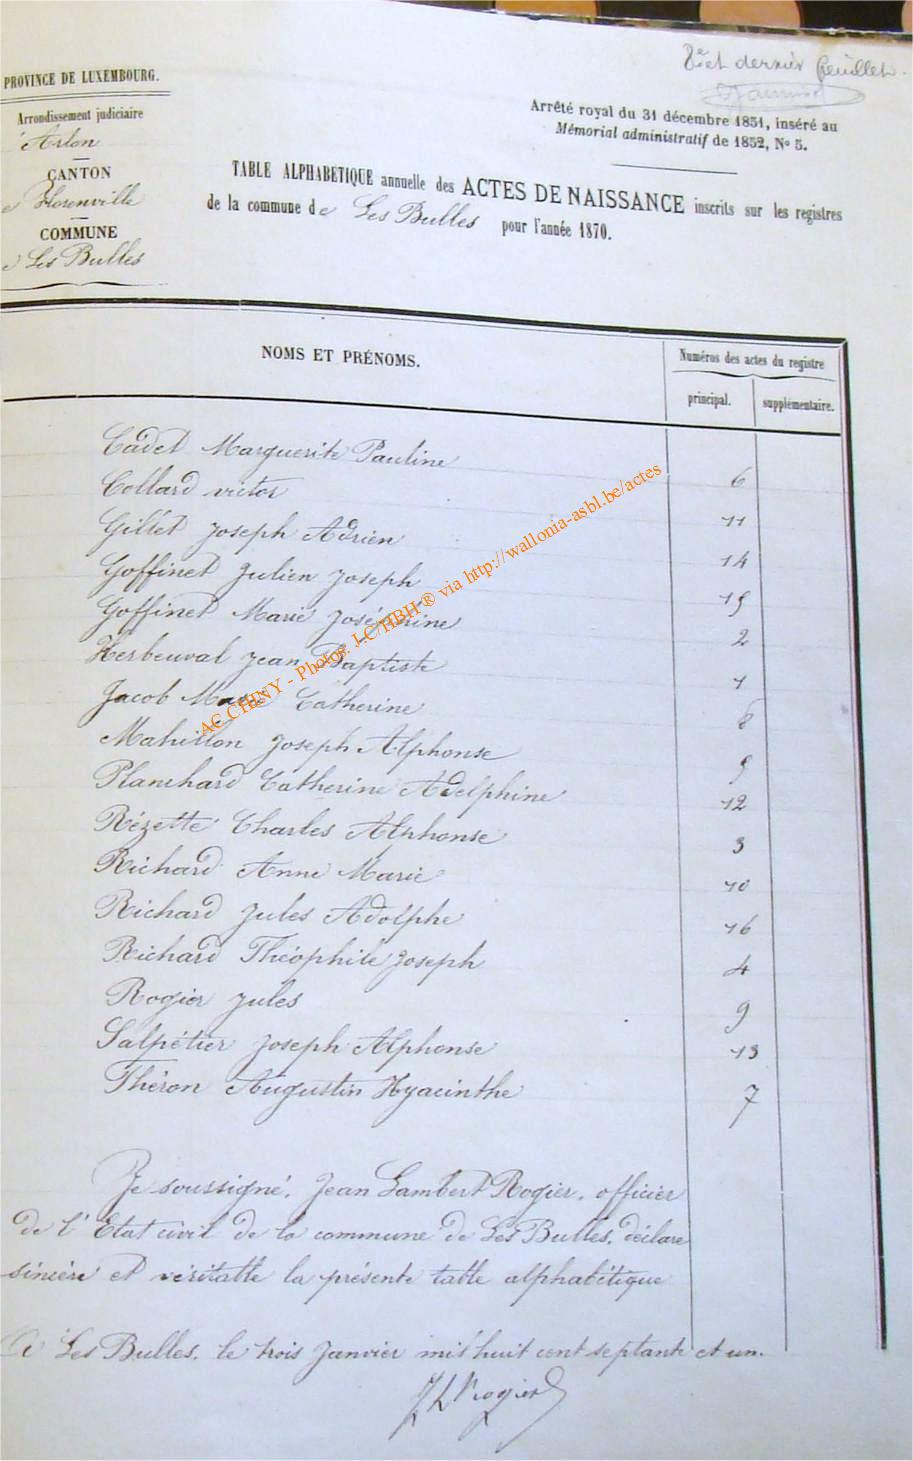 8e et dernier feuillet.
PROVINCE DE LUXEMBOURG.
Arrondissement judiciaire
Arlon
CANTON
e Florenville
COMMUNE
e Les Bulles
Arrêté royal du 31 décembre 1851, inséré au
Mémorial administratif de 1852, No 5.
TABLE ALPHABÉTIQUE annuelle des ACTES DE NAISSANCE inscrits sur les registres
de la commune de Les Bulles pour l'année 1870.
NOMS ET PRÉNOMS.
Numéros des actes du registre
principal. supplémentaire.
Cadet Marguerite Pauline 6
Collard victor 11
Gillet Joseph Adrien 14
Goffinet Julien Joseph 15
Goffinet Marie Joséphine 2
Herbeuval Jean Baptiste 1
Jacob Marie Catherine 8
Mahillon Joseph Alphonse 5
Planchard Catherine Adelphine 12
Rézette Charles Alphonse 3
Richard Anne Marie 10
Richard Jules Adolphe 16
Richard Théophile Joseph 4
Rogier Jules 9
Salpétier Joseph Alphonse 13
Théron Augustin Hyacinthe 7
AC CHINY - Photos: J.C/HBH ® via http://wallonia-asbl.be/actes
Je soussigné, Jean Lambert Rogier, officier
de l'Etat civil de la commune de Les Bulles, déclare
sincère et véritable la présente table alphabétique
A Les Bulles, le trois Janvier mil huit cent septante et un.
JLRogier